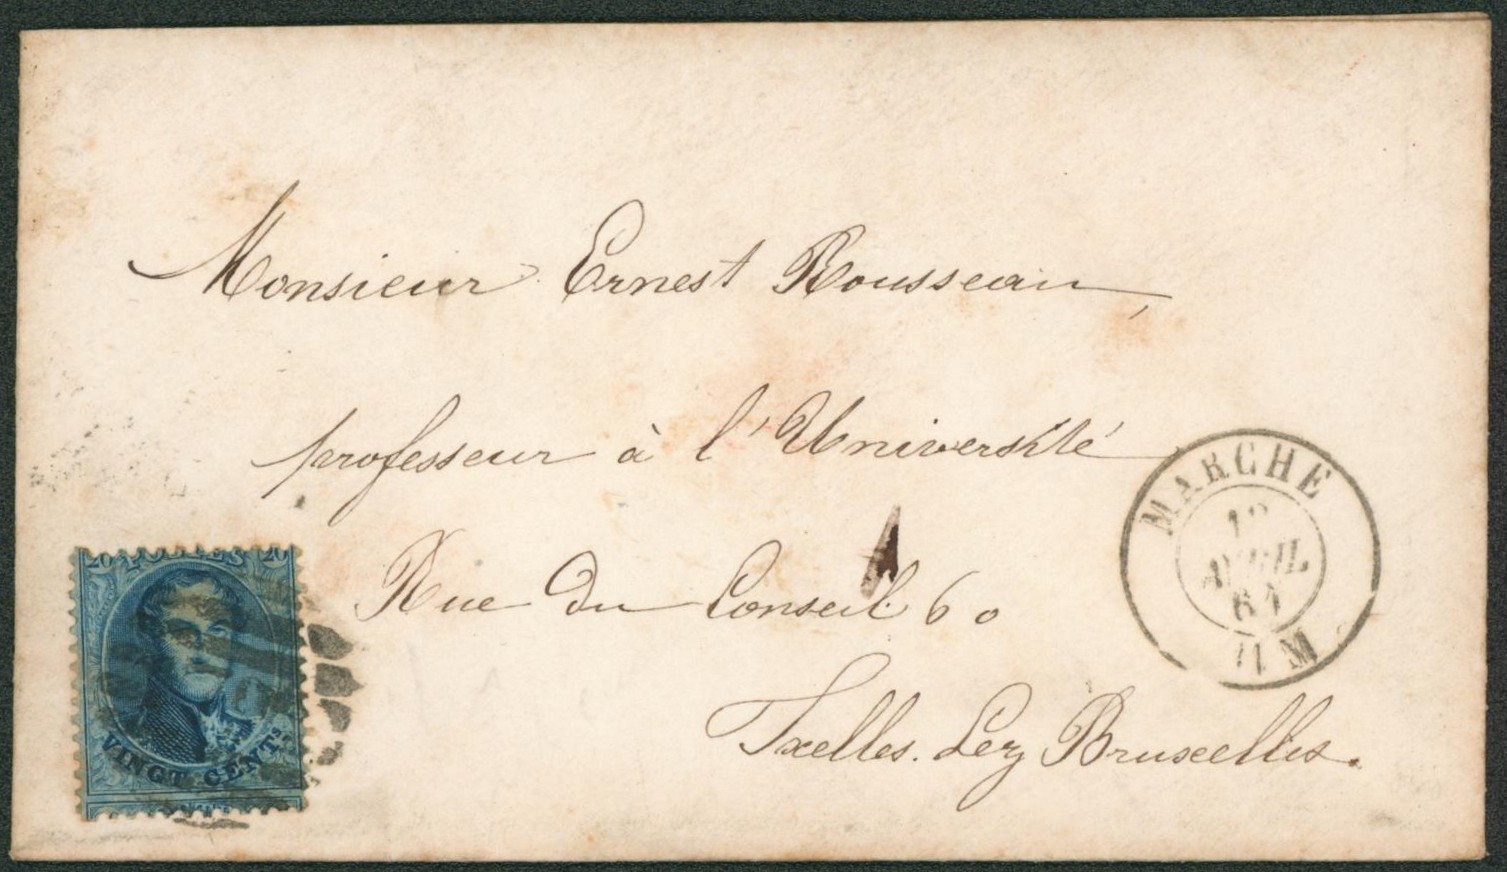 Monsieur Ernest Rousseau,
professeur à l'Université
Rue du Conseil 60
Ixelles. Lez Bruxelles.
MARCHE
AVRIL
11 M
20 POSTES 20
VINGT CENTS